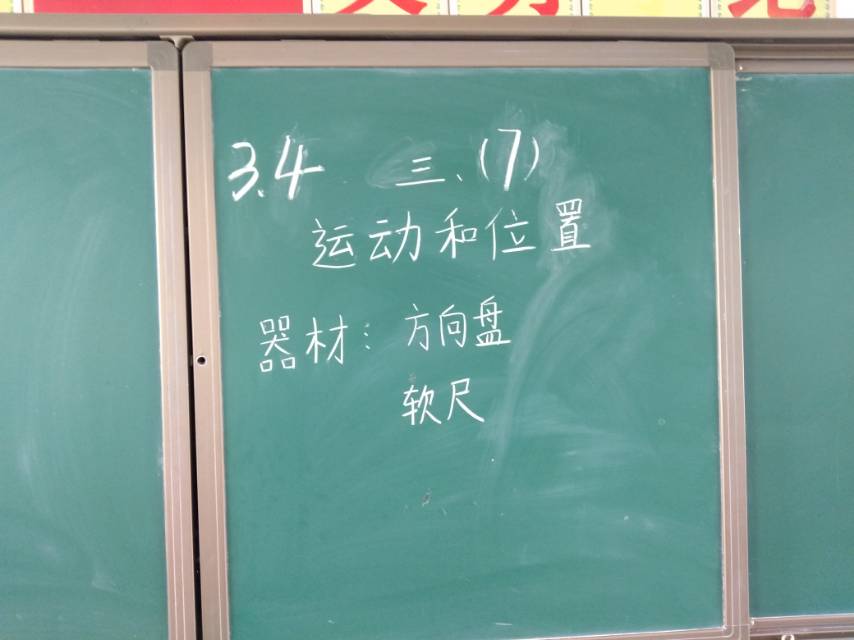 3.4 三、(7)
运动和位置
器材：方向盘
软尺